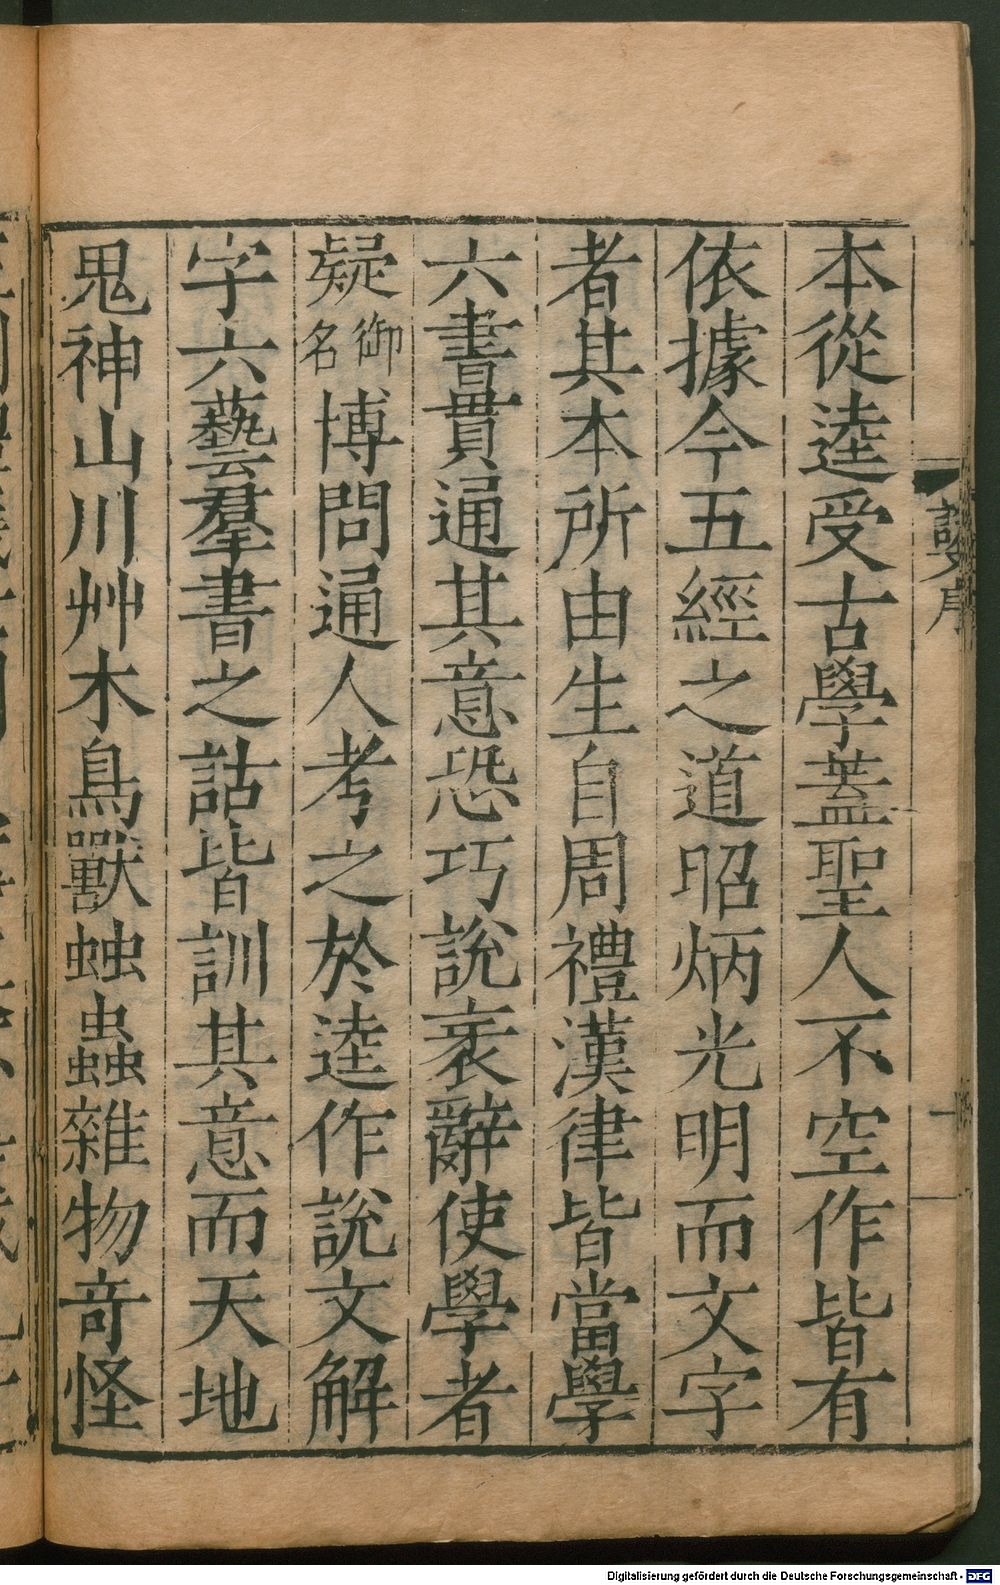 本從逵受古學蓋聖人不空作皆有
依據今五經之道昭炳光明而文字
者其本所由生自周禮漢律皆當學
六書貫通其意恐巧說衺辭使學者
疑御名博問通人考之於逵作說文解
字六藝羣書之詁皆訓其意而天地
鬼神山川艸木鳥獸䖵蟲雜物奇怪
說文序
Digitalisierung gefördert durch die Deutsche Forschungsgemeinschaft - DFG